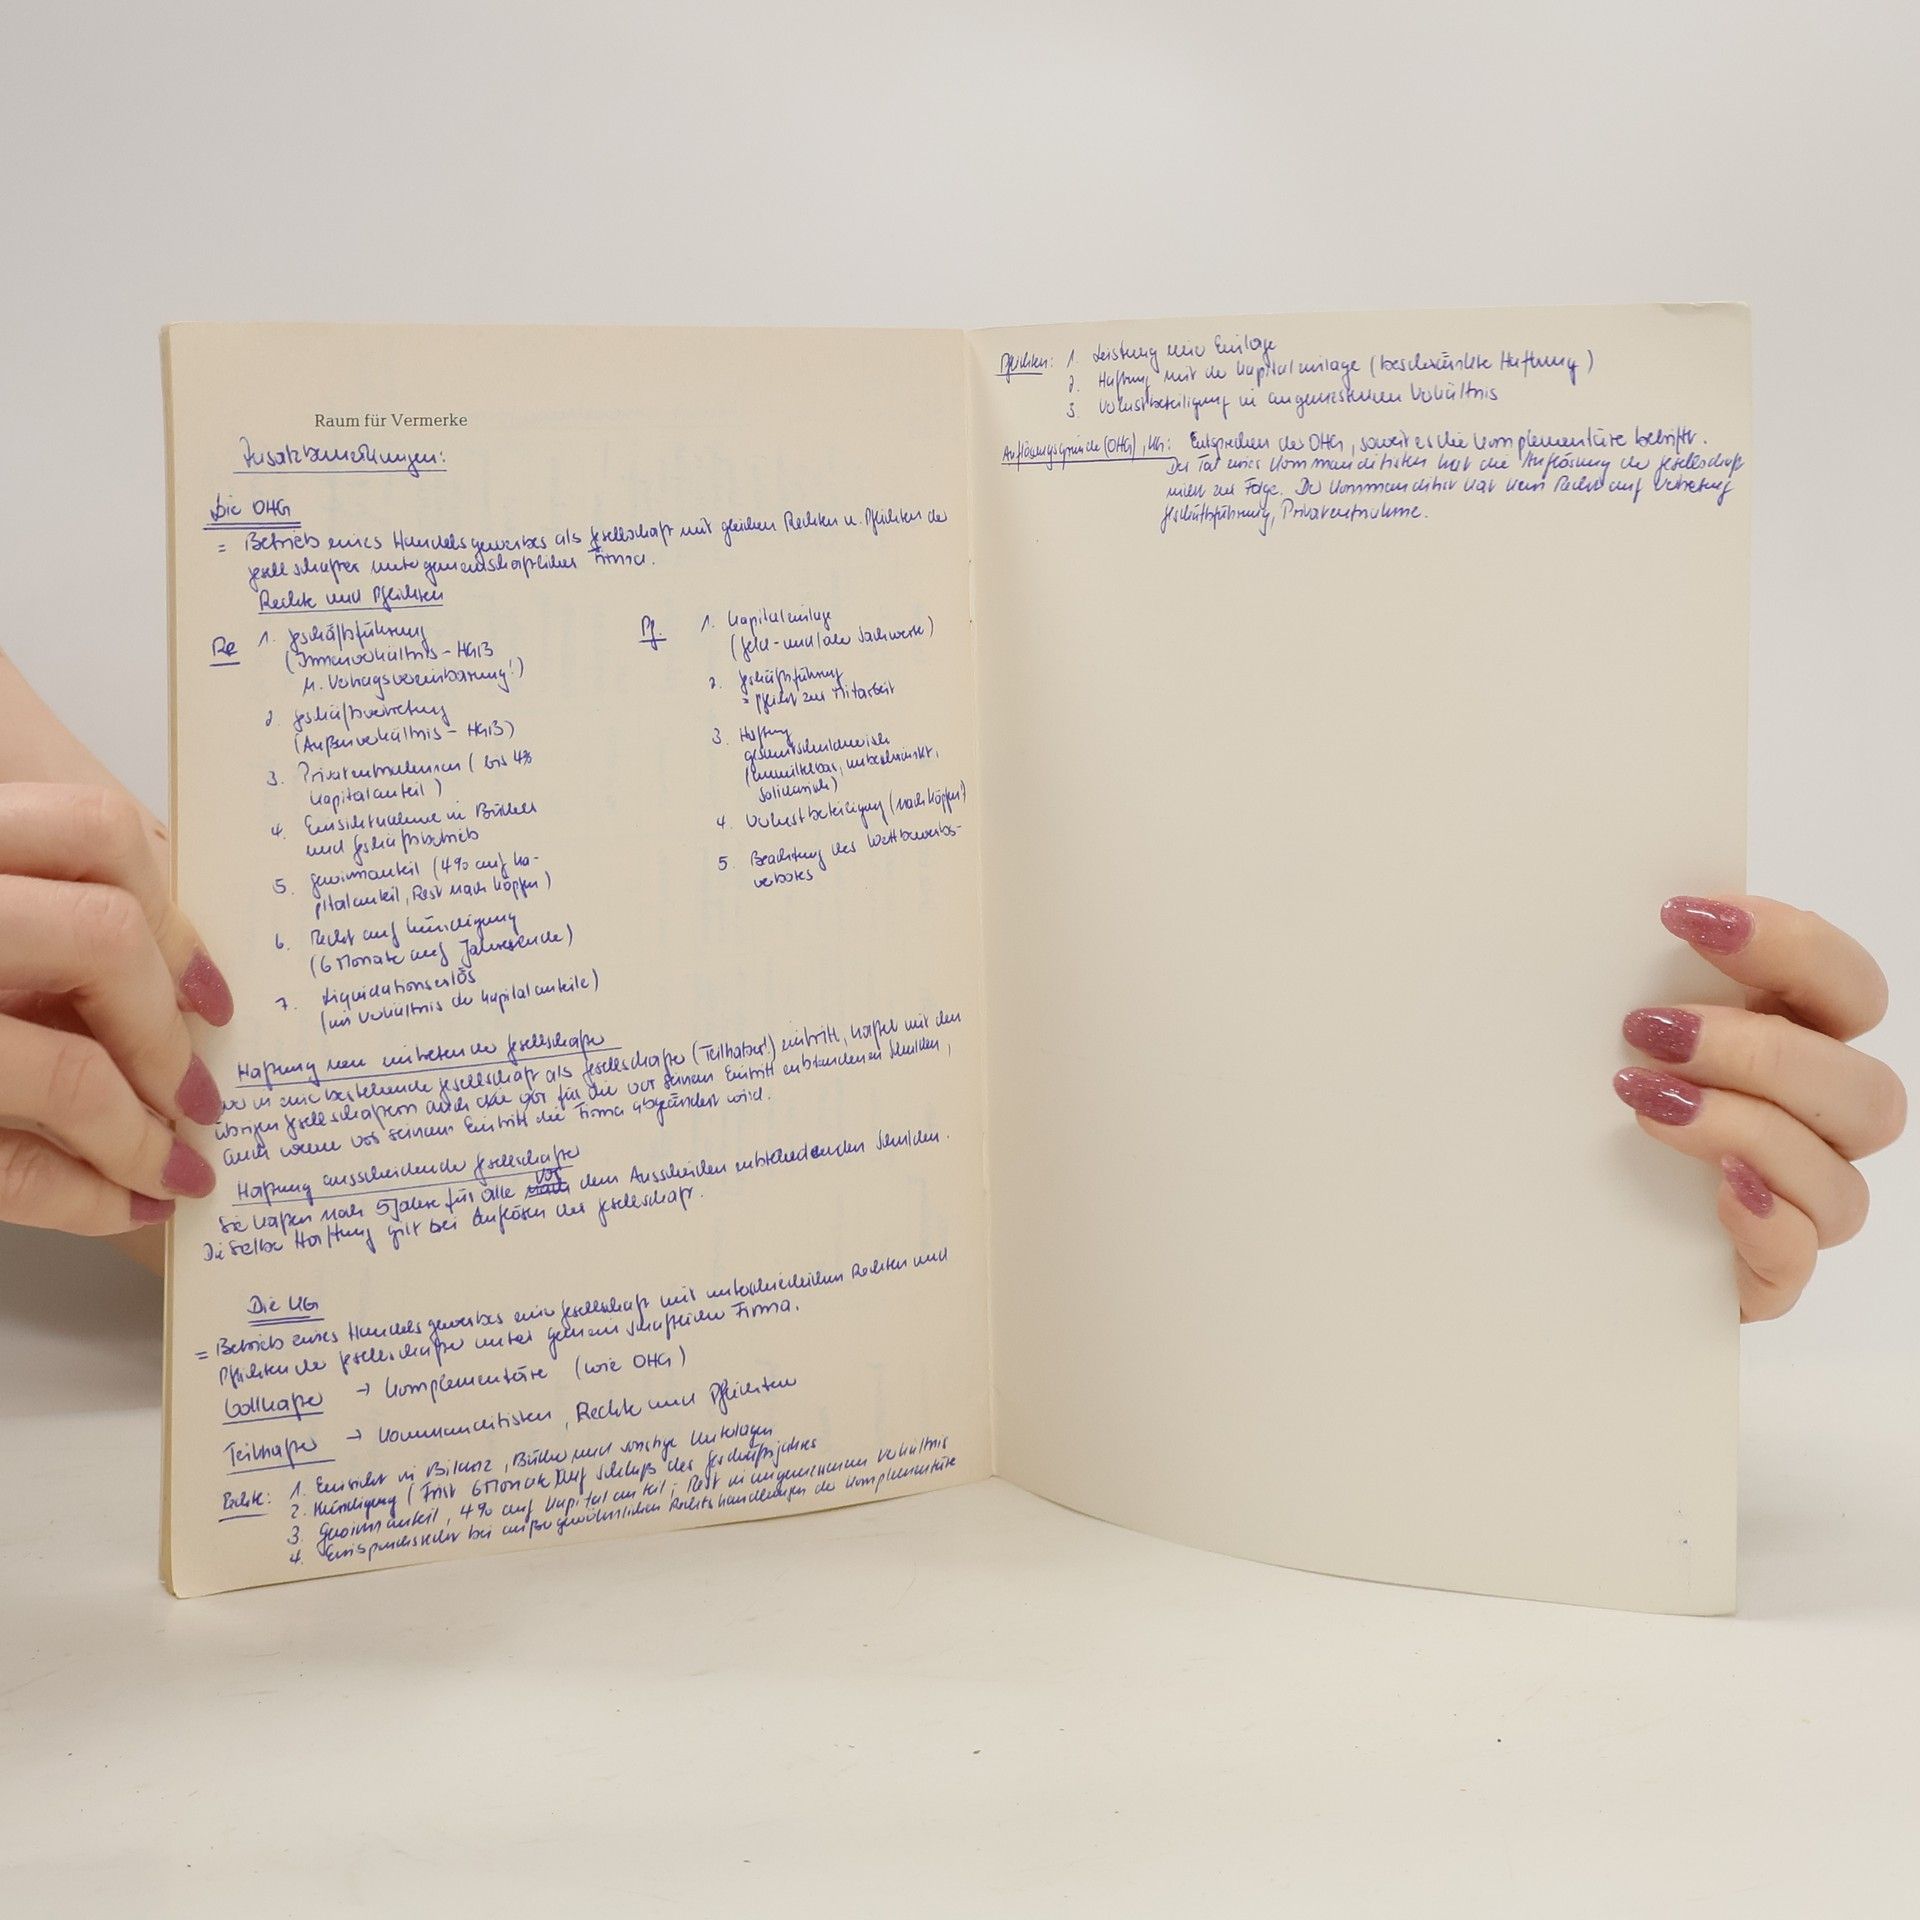 Raum für Vermerke
Zusatzbemerkungen:
Die OHG
= Betrieb eines Handelsgewerbes als Gesellschaft mit gleichen Rechten u. Pflichten der
Gesellschafter unter gemeinschaftlicher Firma.
Rechte und Pflichten
Re 1. Geschäftsführung
(Innenverhältnis - HGB
u. Vertragsvereinbarung!)
2. Geschäftsvertretung
(Außenverhältnis - HGB)
3. Privatentnahmen (bis 4%
Kapitalanteil)
4. Einsichtnahme in Bücher
und Geschäftsbetrieb
5. Gewinnanteil (4% auf Ka-
pitalanteil, Rest nach Köpfen)
6. Recht auf Kündigung
(6 Monate auf Jahresende)
7. Liquidationserlös
(im Verhältnis der Kapitalanteile)
Pf. 1. Kapitaleinlage
(Geld- und/oder Sachwerte)
2. Geschäftsführung
= Pflicht zur Mitarbeit
3. Haftung
gesamtschuldnerisch
(unmittelbar, unbeschränkt,
solidarisch)
4. Verlustbeteiligung (nach Köpfen)
5. Beachtung des Wettbewerbs-
verbotes
Haftung neu eintretender Gesellschafter
Wer in eine bestehende Gesellschaft als Gesellschafter (Teilhaber!) eintritt, haftet mit den
übrigen Gesellschaftern auch für die vor seinem Eintritt entstandenen Schulden,
auch wenn vor seinem Eintritt die Firma abgeändert wird.
Haftung ausscheidender Gesellschafter
Sie haften noch 5 Jahre für alle vor dem Ausscheiden entstehenden Schulden.
Dieselbe Haftung gilt bei Auflösen der Gesellschaft.
Die KG
= Betrieb eines Handelsgewerbes einer Gesellschaft mit unterschiedlichen Rechten und
Pflichten der Gesellschafter unter gemeinschaftlicher Firma.
Vollhafter → Komplementäre (wie OHG)
Teilhafter → Kommanditisten, Rechte und Pflichten
Rechte: 1. Einsicht in Bilanz, Bücher und sonstige Unterlagen
2. Kündigung (Frist 6 Monate auf Schluß des Geschäftsjahres
3. Gewinnanteil, 4% auf Kapitalanteil; Rest in angemessenem Verhältnis
4. Einspruchsrecht bei außergewöhnlichen Rechtshandlungen der Komplementäre
Pflichten: 1. Leistung einer Einlage
2. Haftung mit der Kapitaleinlage (beschränkte Haftung)
3. Verlustbeteiligung in angemessenem Verhältnis
Auflösungsgründe (OHG), KG: Entsprechen der OHG, soweit es die Komplementäre betrifft.
Der Tod eines Kommanditisten hat die Auflösung der Gesellschaft
nicht zur Folge. Der Kommanditist hat kein Recht auf Vertretung
Geschäftsführung, Privatentnahme.